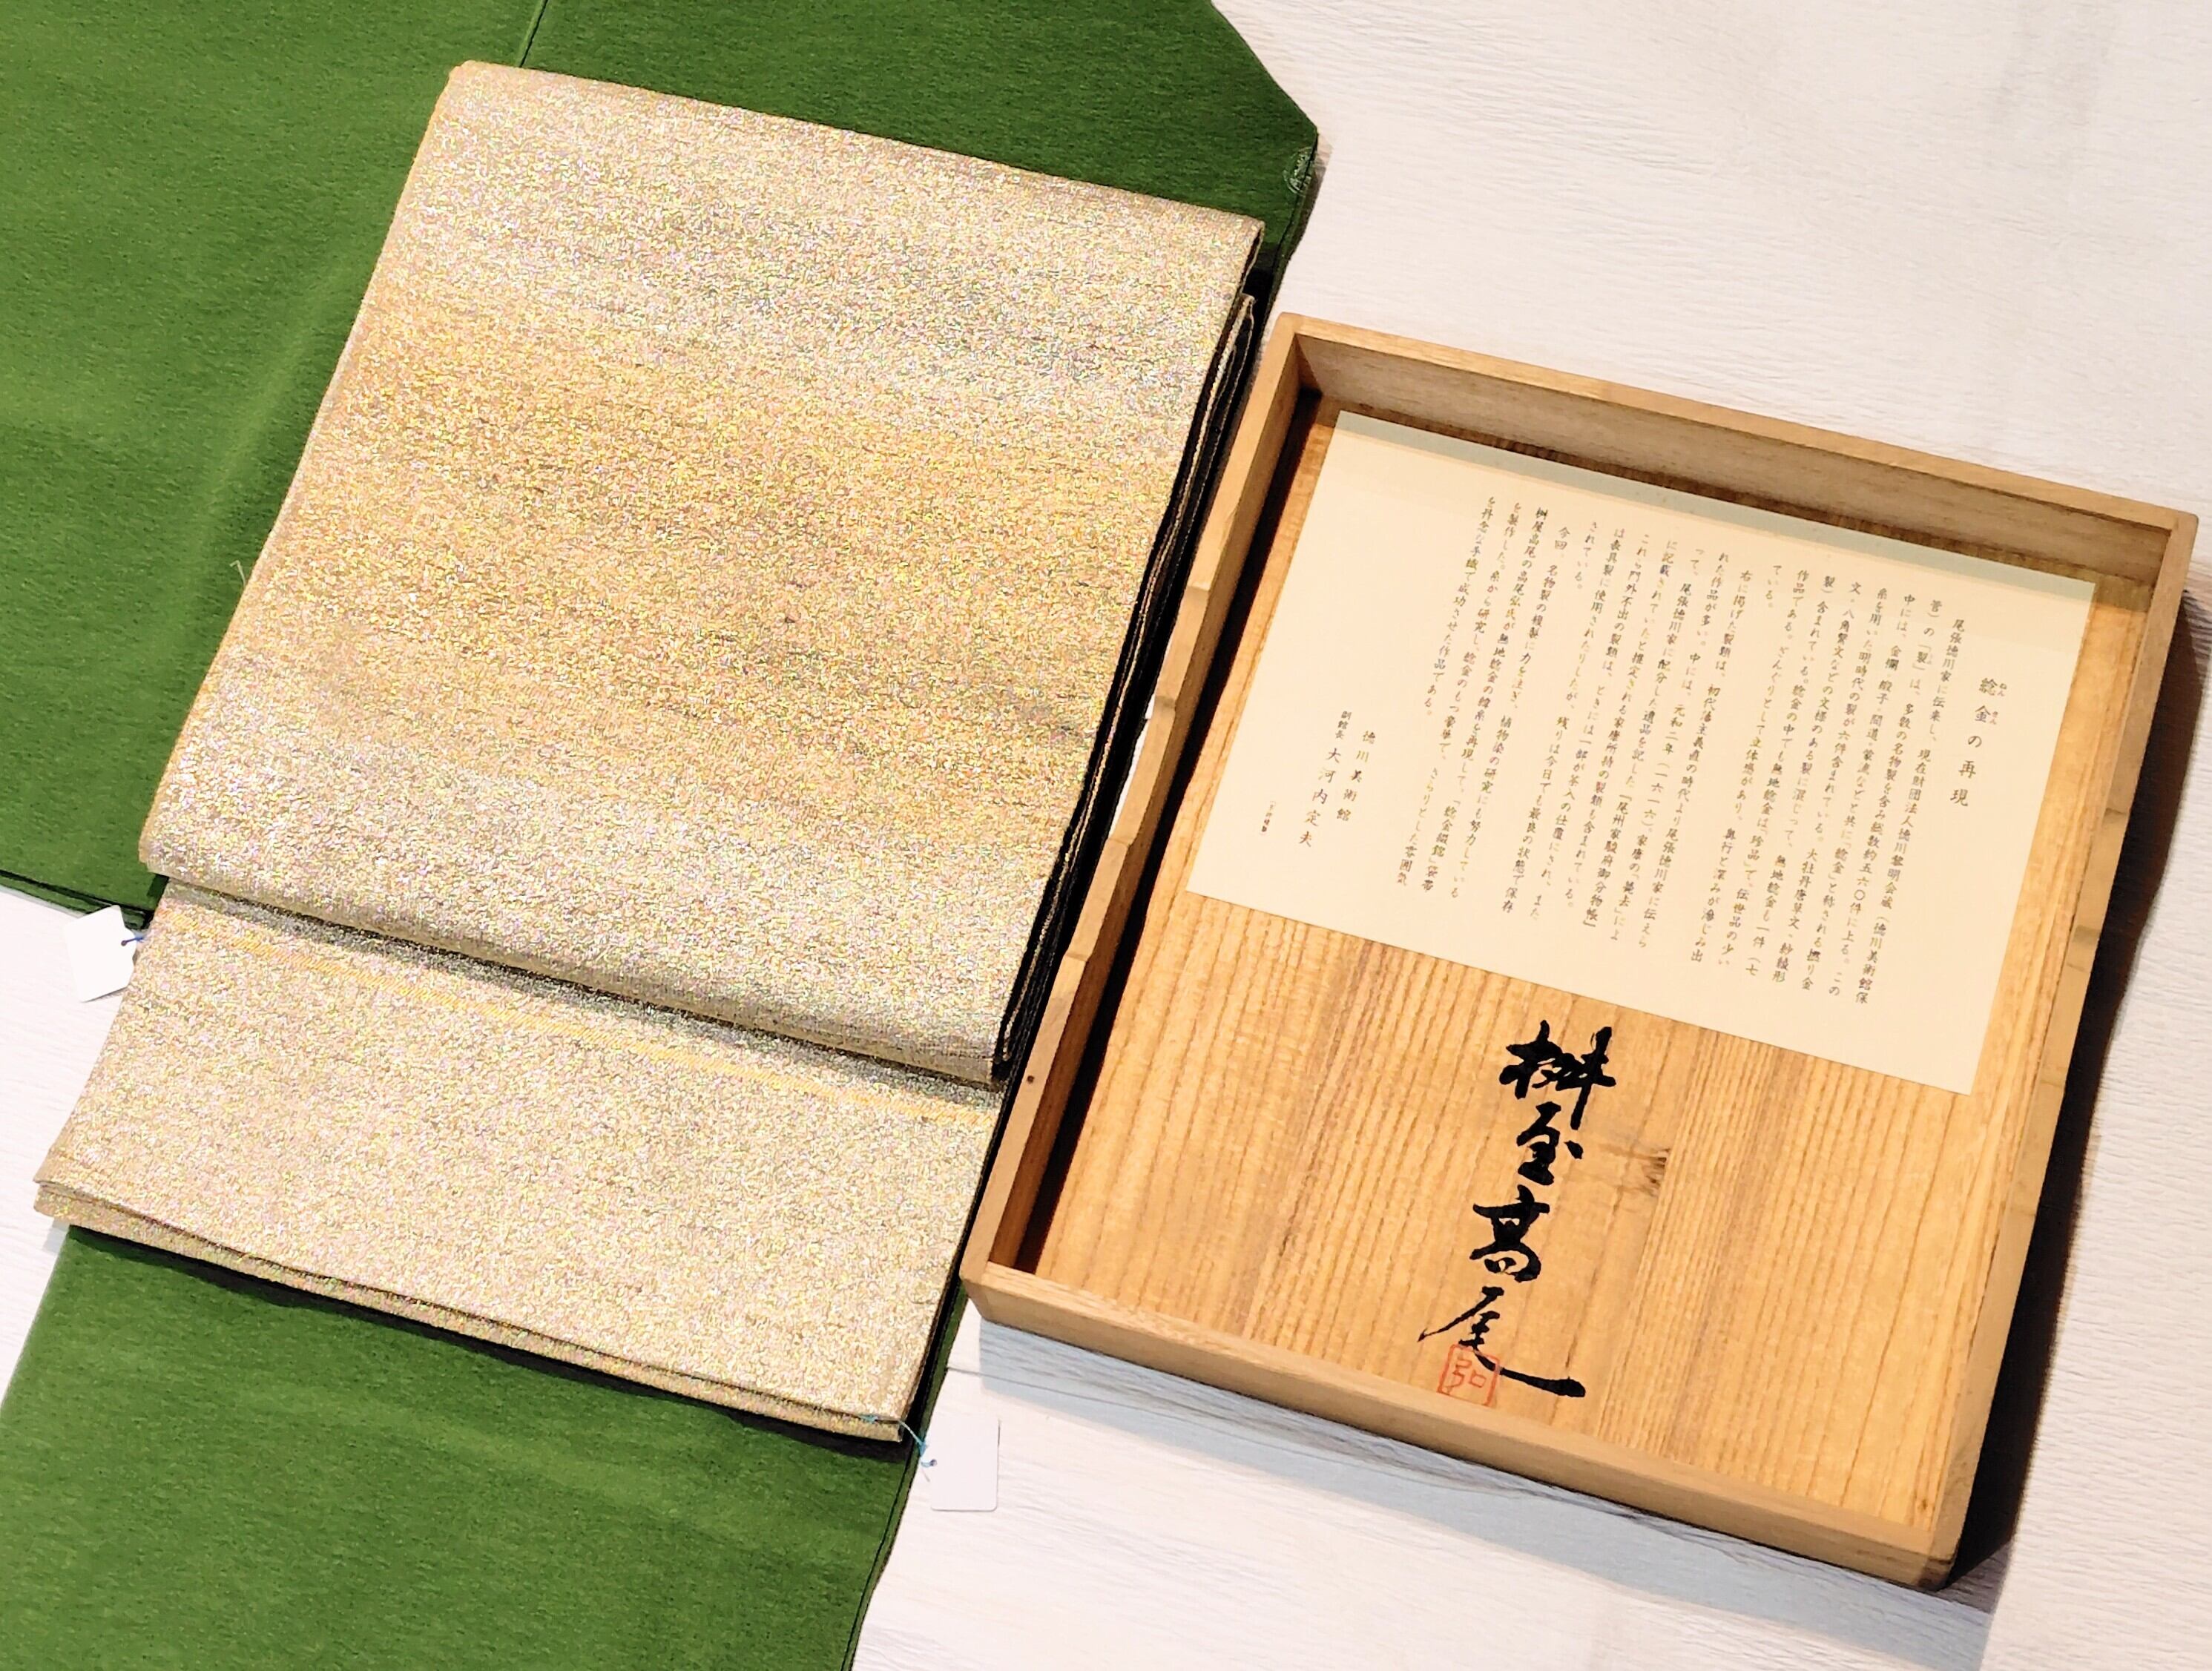 捻金の再現
ねん きん
尾張徳川家に伝来し、現在財団法人徳川黎明会蔵(徳川美術館保
管)の「裂」は、多数の名物裂を含み総数約五六〇件に上る。この
中には、金襴・緞子・間道・蒙流などと共に「捻金」と称される撚り金
糸を用いた同時代の裂が六件含まれている。大牡丹唐草文、紗綾形
文、八角繋文などの文様のある裂に混じって、無地捻金も一件(七
裂)含まれている。捻金の中でも無地捻金は、珍品で、伝世品の少い
作品である。ざんぐりとして立体感があり、奥行と深みが滲じみ出
ている。
右に掲げた裂類は、初代藩主義直の時代より尾張徳川家に伝えら
れた作品が多い。中には、元和二年(一六一六)家康の「薨去」によ
って、尾張徳川家に配分した遺品を記した「尾州家駿府御分物帳」
に記載されていたと推定される家康所持の裂類も含まれている。
これら門外不出の裂類は、ときには一部が茶人の仕覆にされ、また
は表具裂に使用されたりしたが、残りは今日でも最良の状態で保存
されている。
今回、名物裂の複製に力を注ぎ、植物染の研究にも努力している
桝屋高尾の高尾弘氏が無地捻金の緯糸を再現して、「捻金綴錦」袋帯
を製作した。糸から研究し、捻金のもつ豪華で、さらりとした雰囲気
を丹念な手織で成功させた作品である。
徳川美術館
副館長 大河内定夫
桝屋高尾
弘